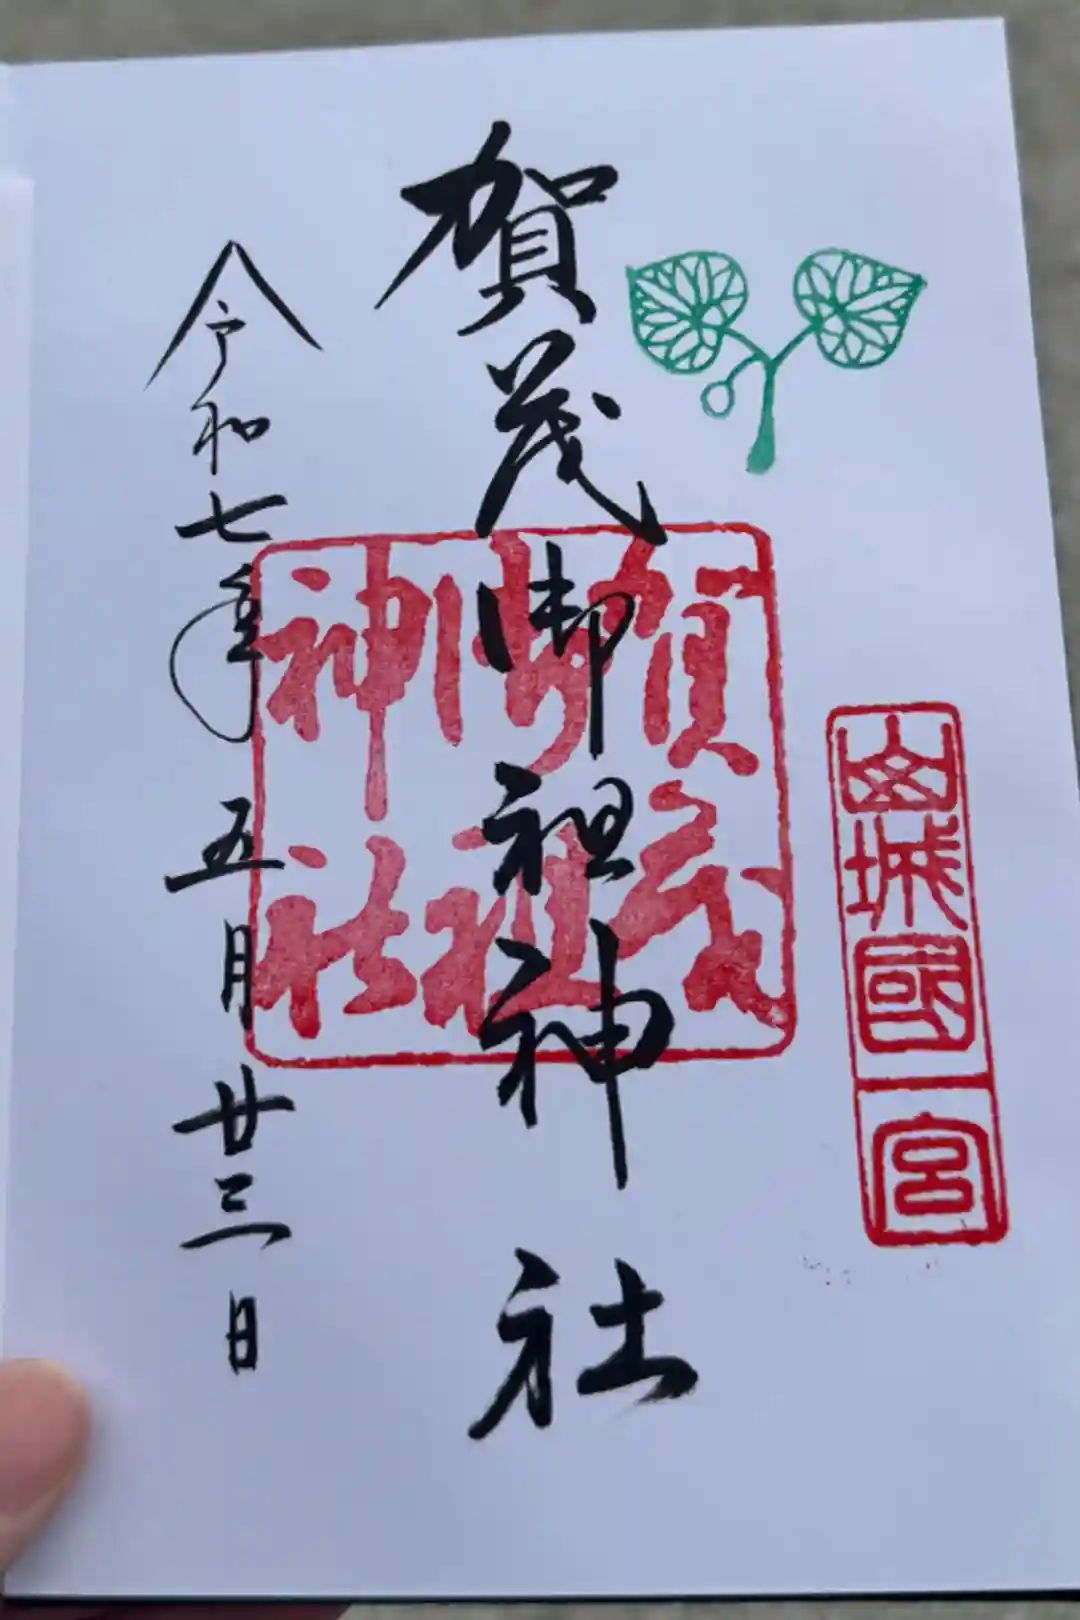 山城國一宮
賀茂御祖神社
賀茂
御祖
神社
令和七年五月廿三日